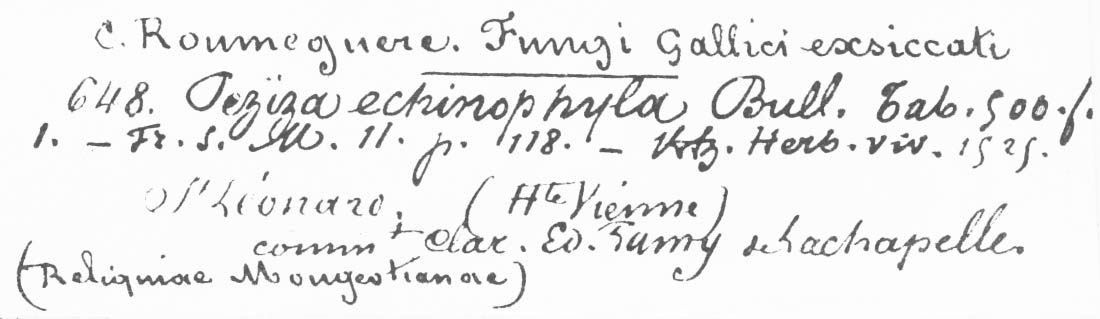 C. Roumeguere. Fungi Gallici exsiccati
648. Peziza echinophyla Bull. Tab. 500. f.
1. – Fr. S. M. 11. p. 118. – Krtz. Herb. viv. 1525.
St Léonard. (Hte Vienne)
commt clar. Ed. Lamy de Lachapelle.
(Reliquiae Mougeotianae)